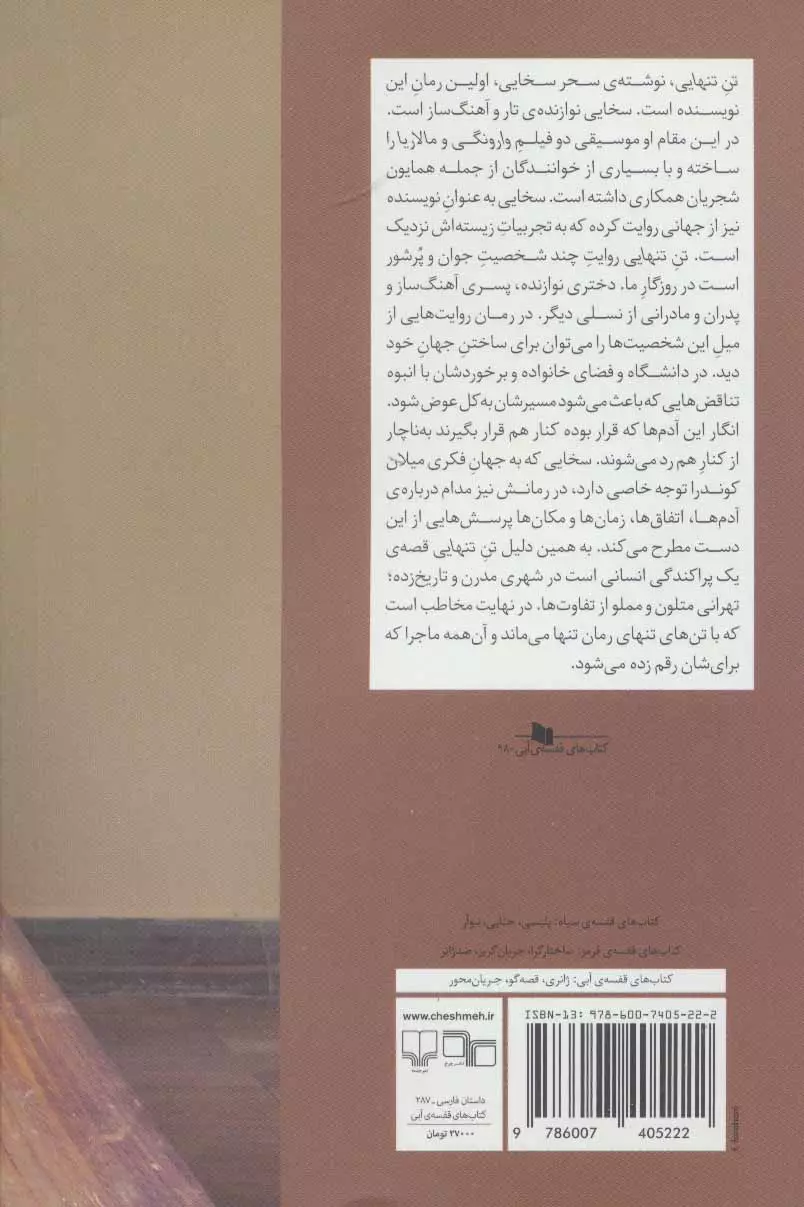 تنِ تنهایی، نوشته‌ی سحر سخایی، اولین رمانِ این
نویسنده است. سخایی نوازنده‌ی تار و آهنگ‌ساز است.
در این مقام او موسیقی دو فیلمِ وارونگی و مالاریا را
ساخته و با بسیاری از خوانندگان از جمله همایون
شجریان همکاری داشته است. سخایی به عنوانِ نویسنده
نیز از جهانی روایت کرده که به تجربیاتِ زیسته‌اش نزدیک
است. تنِ تنهایی روایتِ چند شخصیتِ جوان و پُرشور
است در روزگارِ ما. دختری نوازنده، پسری آهنگ‌ساز و
پدران و مادرانی از نسلی دیگر. در رمان روایت‌هایی از
میلِ این شخصیت‌ها را می‌توان برای ساختنِ جهانِ خود
دید. در دانشگاه و فضای خانواده و برخوردشان با انبوه
تناقض‌هایی که باعث می‌شود مسیرشان به‌کل عوض شود.
انگار این آدم‌ها که قرار بوده کنار هم قرار بگیرند به‌ناچار
از کنارِ هم رد می‌شوند. سخایی که به جهانِ فکری میلان
کوندرا توجه خاصی دارد، در رمانش نیز مدام درباره‌ی
آدم‌ها، اتفاق‌ها، زمان‌ها و مکان‌ها پرسش‌هایی از این
دست مطرح می‌کند. به همین دلیل تنِ تنهایی قصه‌ی
یک پراکندگی انسانی است در شهری مدرن و تاریخ‌زده؛
تهرانی متلون و مملو از تفاوت‌ها. در نهایت مخاطب است
که با تن‌های تنهای رمان تنها می‌ماند و آن‌همه ماجرا که
برای‌شان رقم زده می‌شود.
کتاب‌های قفسه‌ی آبی -۹۸
کتاب‌های قفسه‌ی سیاه: پلیسی، جنایی، نوآر
کتاب‌های قفسه‌ی قرمز: ساختارگرا، جریان‌گریز، ضدژانر
کتاب‌های قفسه‌ی آبی: ژانری، قصه‌گو، جریان‌محور
www.cheshmeh.ir
نشر چرخ
نشر چشمه
داستان فارسی - ۲۸۷
کتاب‌های قفسه‌ی آبی
۲۷۰۰۰ تومان
ISBN-13: 978-600-7405-22-2
9 786007 405222